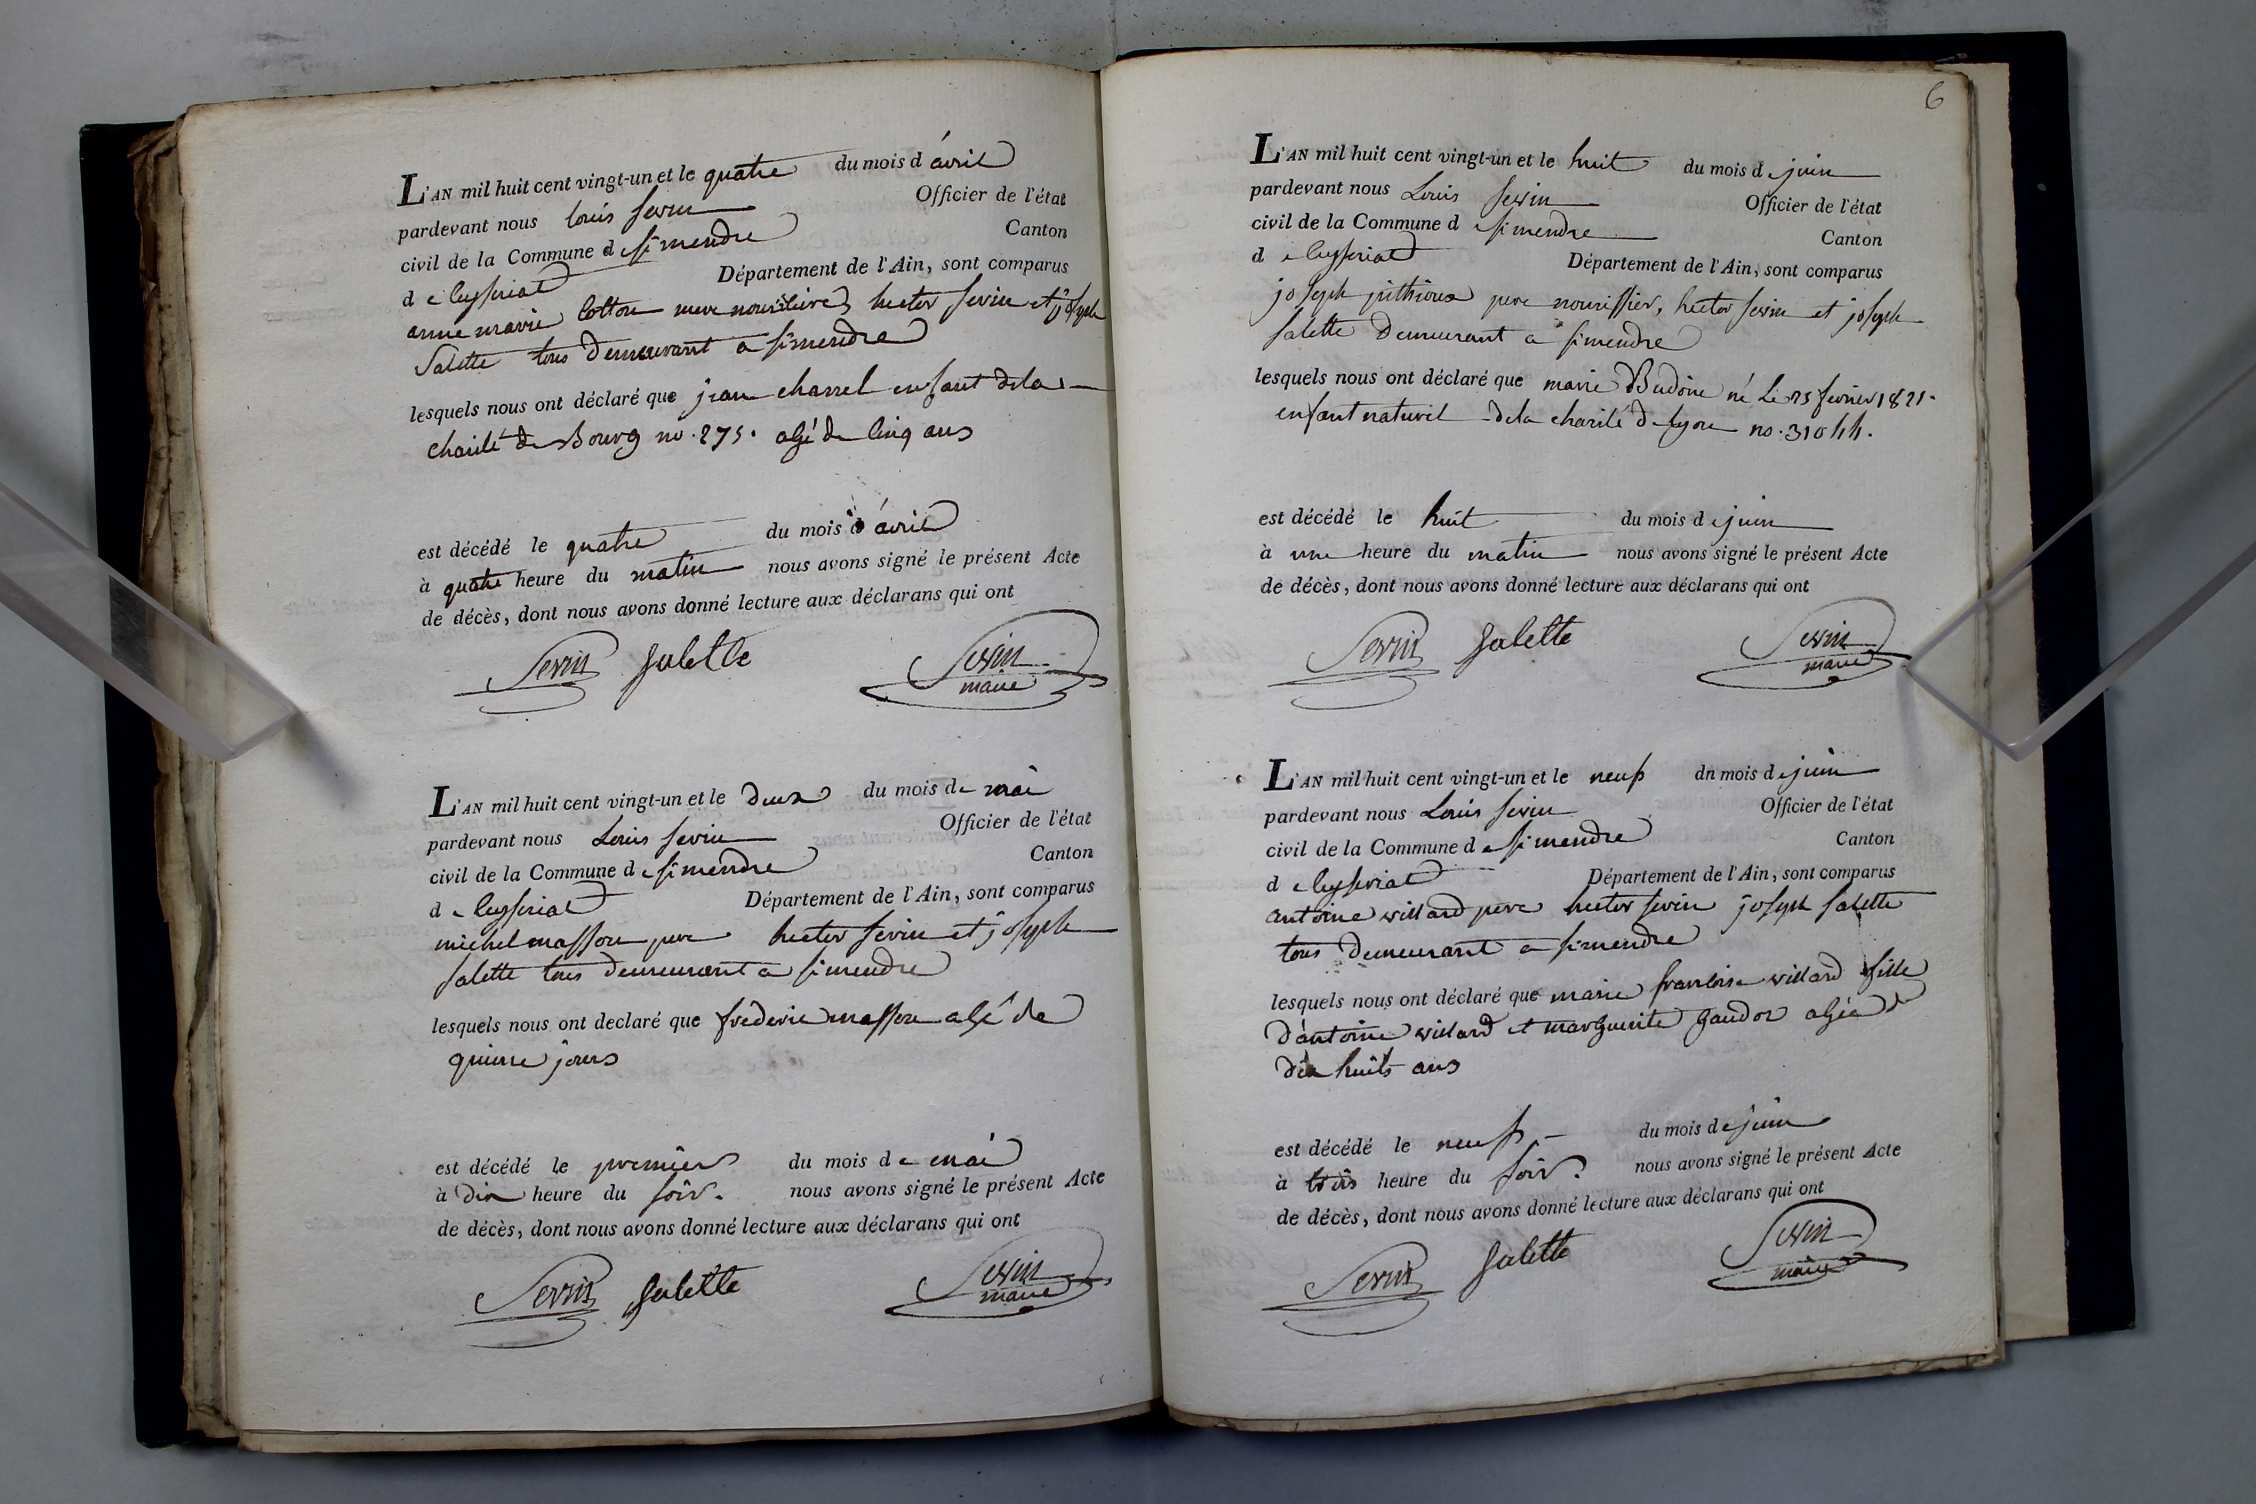 L'AN mil huit cent vingt-un et le quatre du mois d'avril
pardevant nous louis sevin Officier de l'état
civil de la Commune de simendre Canton
de Ceyseriat Département de l'Ain, sont comparus
anne marie cotton mere hector sevin et joseph
Salette tous demeurant a simendre
lesquels nous ont déclaré que jean charrel enfant dela
charité de Bourg no. 275. agé de cinq ans
est décédé le quatre du mois d'avril
à quatre heure du matin nous avons signé le présent Acte
de décès, dont nous avons donné lecture aux déclarans qui ont
Sevin Salette Sevin
maire
L'AN mil huit cent vingt-un et le deux du mois de mai
pardevant nous Louis sevin Officier de l'état
civil de la Commune de simendre Canton
de Ceyseriat Département de l'Ain, sont comparus
michel masson pere hector sevin et joseph
salette tous demeurant a simendre
lesquels nous ont declaré que frederic masson agé de
quinze jours
est décédé le premier du mois de mai
à dix heure du soir. nous avons signé le présent Acte
de décès, dont nous avons donné lecture aux déclarans qui ont
Sevin Salette Sevin
maire
6
L'AN mil huit cent vingt-un et le huit du mois de juin
pardevant nous Louis sevin Officier de l'état
civil de la Commune de simendre Canton
de Ceyseriat Département de l'Ain, sont comparus
joseph pere nourissier, hector sevin et joseph
salette demeurant a simendre
lesquels nous ont déclaré que marie né Le fevrier 1821.
enfant naturel dela charité de lyon no.
est décédé le huit du mois de juin
à une heure du matin nous avons signé le présent Acte
de décès, dont nous avons donné lecture aux déclarans qui ont
Sevin Salette Sevin
maire
L'AN mil huit cent vingt-un et le neuf dn mois de juin
pardevant nous Louis sevin Officier de l'état
civil de la Commune de simendre Canton
de Ceyseriat Département de l'Ain, sont comparus
antoine villard pere hector sevin joseph salette
tous demeurant a simendre
lesquels nous ont déclaré que marie francoise villard fille
d'antoine villard et marguerite gaudoz agée de
dix huits ans
est décédé le neuf du mois de juin
à trois heure du soir. nous avons signé le présent Acte
de décès, dont nous avons donné lecture aux déclarans qui ont
Sevin Salette Sevin
maire